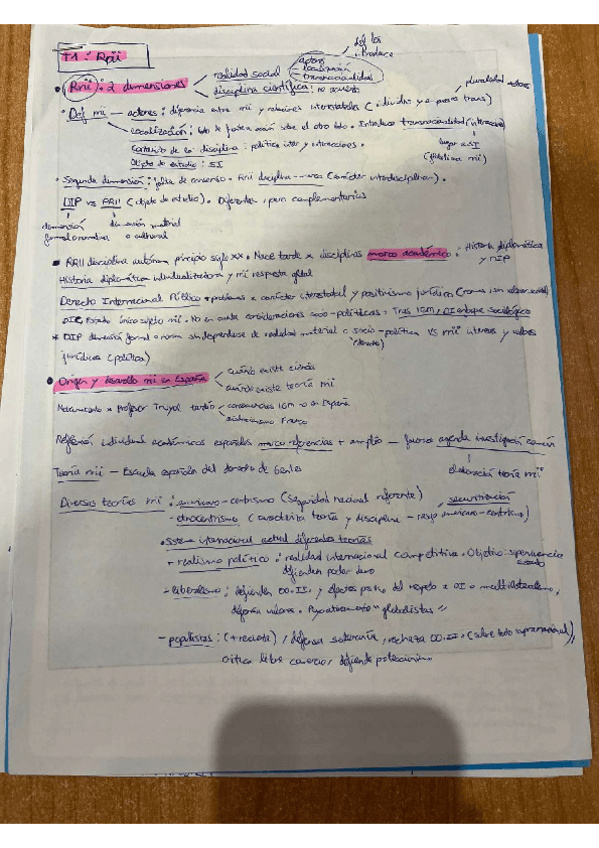 T1: Rrii
Rrii: 2 dimensiones
realidad social
disciplina científica: no acuerdo
actores
localización
transnacionalidad
pluralidad actores
Def rrii — actores: diferencia entre rrii y relaciones interestatales
Localización:
Introduce transnacionalidad
lugar a SI
Contenido de la disciplina: política inter y interacciones.
Objeto de estudio: SI
Segunda dimensión: falta de consenso. (carácter interdisciplinar).
DIP vs RRII (objeto de estudio). Diferentes, pero complementarias
dimensión formal o normativa
dimensión material o cultural
RRII disciplina autónoma principio siglo XX. Nace tarde x disciplinas marco académico: Historia diplomática y DIP
Historia diplomática individualizadora y rrii respuesta global
Derecho Internacional Público → problemas x carácter interestatal y positivismo jurídico
DIC Estado único sujeto rrii. No en cuenta consideraciones socio-políticas. Tras IGM, DI enfoque sociológico
* DIP dimensión formal o norma sin independencia de realidad material o socio-política VS rrii intereses y valores
jurídicos (política)
Origen y desarrollo rrii en España
cuándo existe ciencia
cuándo existe teoría rrii
Nacimiento x Profesor Truyol tardío
consecuencias IGM no en España
aislacionismo Franco
Reflexión individual académicos españoles marco referencias + amplio — fuerza agenda investigación común
elaboración teoría rrii
Teoría rrii — Escuela española del derecho de Gentes
Diversas teorías rrii: americano-centrismo (Seguridad nacional referente)
securitización
- etnocentrismo (caracteriza teoría y disciplina - rasgo americano-centrismo)
Sistema internacional actual diferentes teorías
+ realismo político: realidad internacional competitiva. Objetivo: supervivencia estado
defienden poder duro
- liberalismo: defienden OO.II. y efectos positivo del respeto x DI o multilateralismo,
defienden valores. Peyorativamente "globalistas"
- populistas: (+ reciente), defensa soberanía, rechaza OO.II. (sobre todo supranacional),
critica libre comercio, defiende proteccionismo